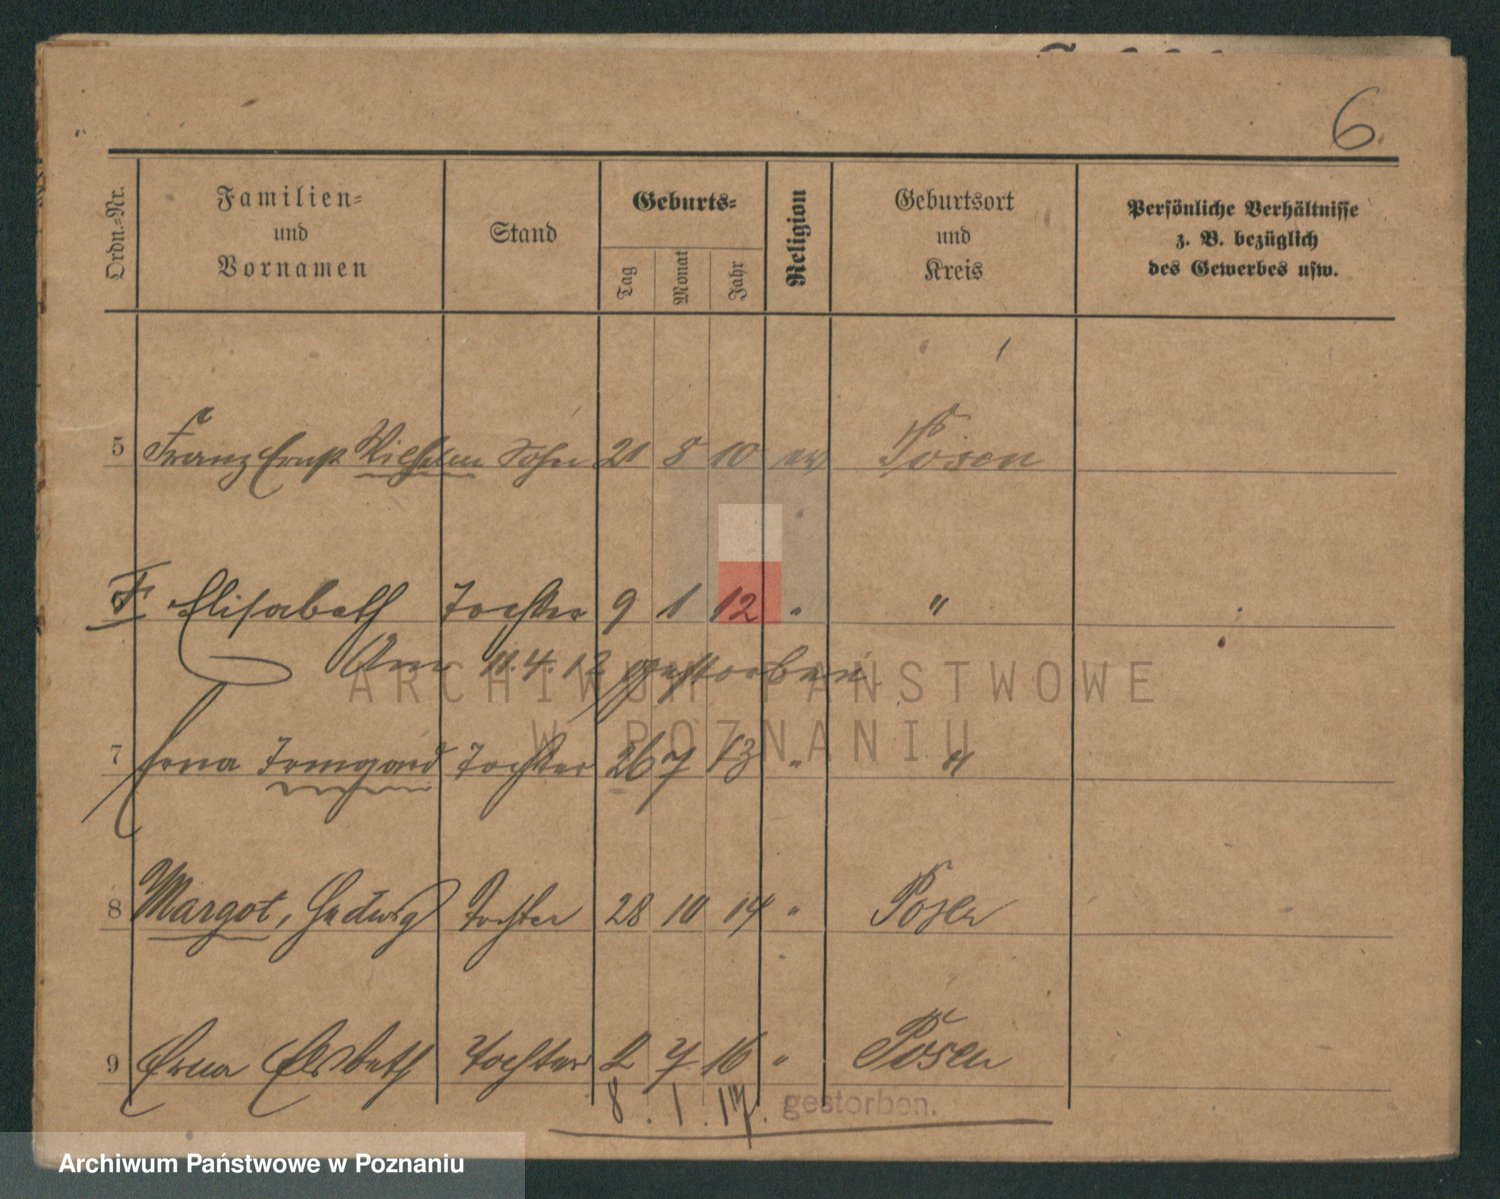 6
Ordn.-Nr. Familien- und Vornamen Stand Geburts- Tag Monat Jahr Religion Geburtsort und Kreis Persönliche Verhältnisse z. B. bezüglich des Gewerbes usw.
5 Franz Ernst Wilhelm Sohn 21 5 10 ev Posen
Elisabeth Tochter 9 1 12 " "
Am 11.4.12 gestorben
7 Erna Irmgard Tochter 26 7 13 " "
8 Margot, Hedwig Tochter 28 10 14 " Posen
9 Erna Elsbeth Tochter 2 7 16 " Posen
8. 1. 17. gestorben.
ARCHIWUM PAŃSTWOWE
W POZNANIU
Archiwum Państwowe w Poznaniu